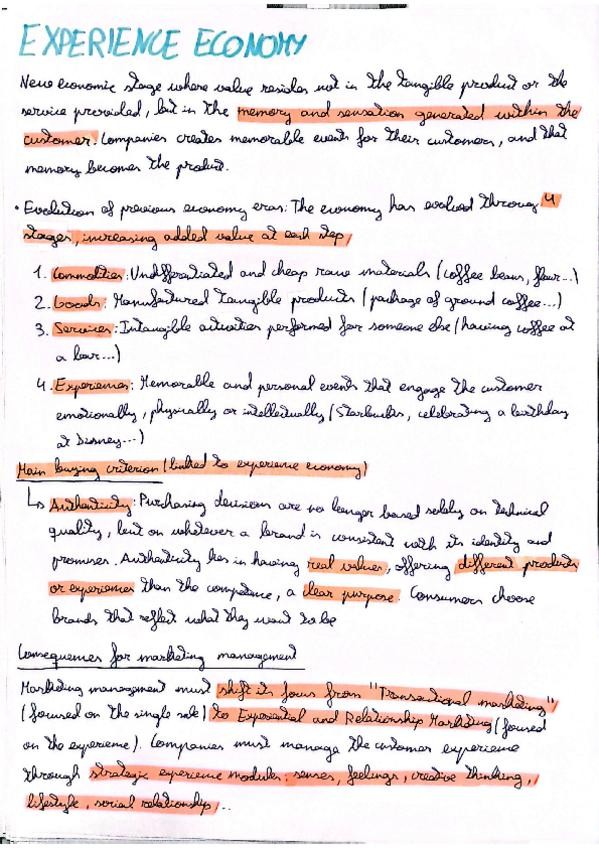 EXPERIENCE ECONOMY
New economic stage where value resides not in the tangible product or the
service provided, but in the memory and sensation generated within the
customer. Companies creates memorable events for their customers, and that
memory becomes the product.
• Evolution of previous economy eras: The economy has evolved through 4
stages, increasing added value at each step
1. Commodities: Undifferentiated and cheap raw materials (coffee beans, flour...)
2. Goods: Manufactured tangible products (package of ground coffee...)
3. Services: Intangible activities performed for someone else (having coffee at
a bar...)
4. Experiences: Memorable and personal events that engage the customer
emotionally, physically or intellectually (Starbucks, celebrating a birthday
at Disney...)
Main buying criterion (linked to experience economy)
↳ Authenticity: Purchasing decisions are no longer based solely on technical
quality, but on whatever a brand is consistent with its identity and
promises. Authenticity lies in having real values, offering different products
or experiences than the competence, a clear purpose. Consumers choose
brands that reflect what they want to be
Consequences for marketing management
Marketing management must shift its focus from "Transactional marketing"
(focused on the single sale) to Experiential and Relationship Marketing (focused
on the experience). Companies must manage the customer experience
through strategic experience modules: senses, feelings, creative thinking,
lifestyle, social relationship...